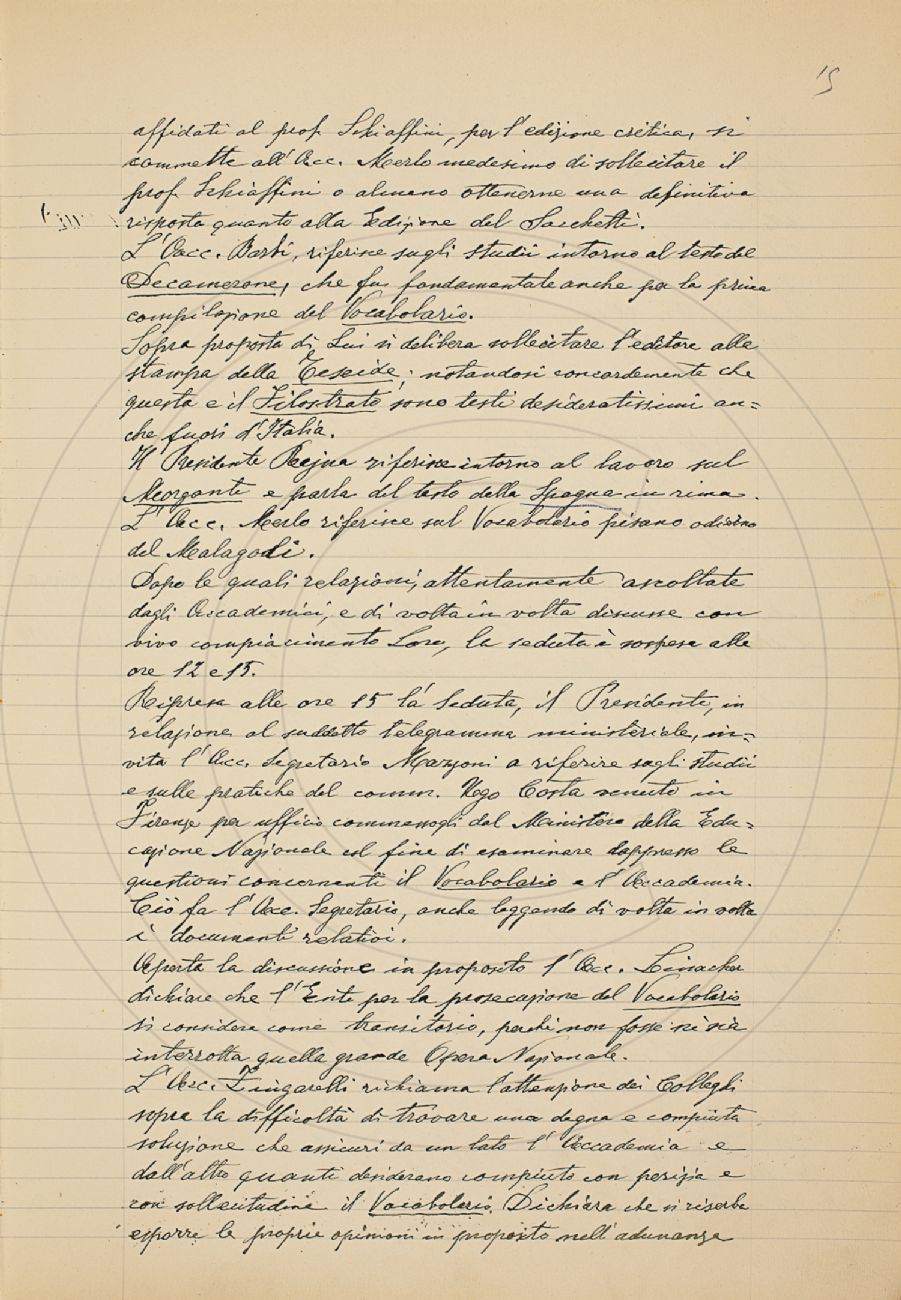 15
affidati al prof. Schiaffini, per l'edizione critica, si
commette all'Acc. Merlo medesimo di sollecitare il
prof. Schiaffini o almeno ottenerne una definitiva
risposta quanto alla Edizione del Sacchetti.
L'Acc. Barbi, riferisce sugli studii intorno al testo del
Decamerone, che fu fondamentale anche per la prima
compilazione del Vocabolario.
Sopra proposta di Lui si delibera sollecitare l'editore alla
stampa della Teseide; notandosi concordemente che
questa e il Filostrato sono testi desideratissimi an=
che fuori d'Italia.
Il Presidente Rajna riferisce intorno al lavoro sul
Morgante e parla del testo della Spagna in rima.
L'Acc. Merlo riferisce sul Vocabolario pisano odierno
del Malagoli.
Dopo le quali relazioni, attentamente ascoltate
dagli Accademici, e di volta in volta discusse con
vivo compiacimento Loro, la seduta è sospesa alle
ore 12 e 15.
Ripresa alle ore 15 la Seduta, il Presidente, in
relazione al suddetto telegramma ministeriale, in=
vita l'Acc. Segretario Mazzoni a riferire sugli studii
e sulle pratiche del comm. Ugo Costa venuto in
Firenze per ufficio commessogli dal Ministero della Edu=
cazione Nazionale col fine di esaminare dappresso le
questioni concernenti il Vocabolario e l'Accademia.
Ciò fa l'Acc. Segretario, anche leggendo di volta in volta
i documenti relativi.
Aperta la discussione in proposito l'Acc. Linacher
dichiara che l'Ente per la prosecuzione del Vocabolario
si considera come transitorio, perchè non fosse nè sia
interrotta quella grande Opera Nazionale.
L'Acc. Zingarelli richiama l'attenzione dei Colleghi
sopra la difficoltà di trovare una degna e compiuta
soluzione che assicuri da un lato l'Accademia e
dall'altro quanti desiderano compiuto con perizia e
con sollecitudine il Vocabolario. Dichiara che si riserba
esporre le proprie opinioni in proposito nell'adunanza